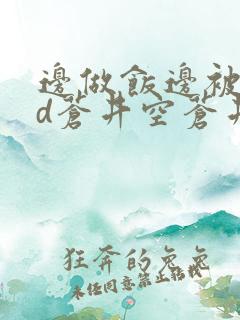 邊做飯邊被
d蒼井空蒼井
狂奔的兔兔
未经同意禁止转载